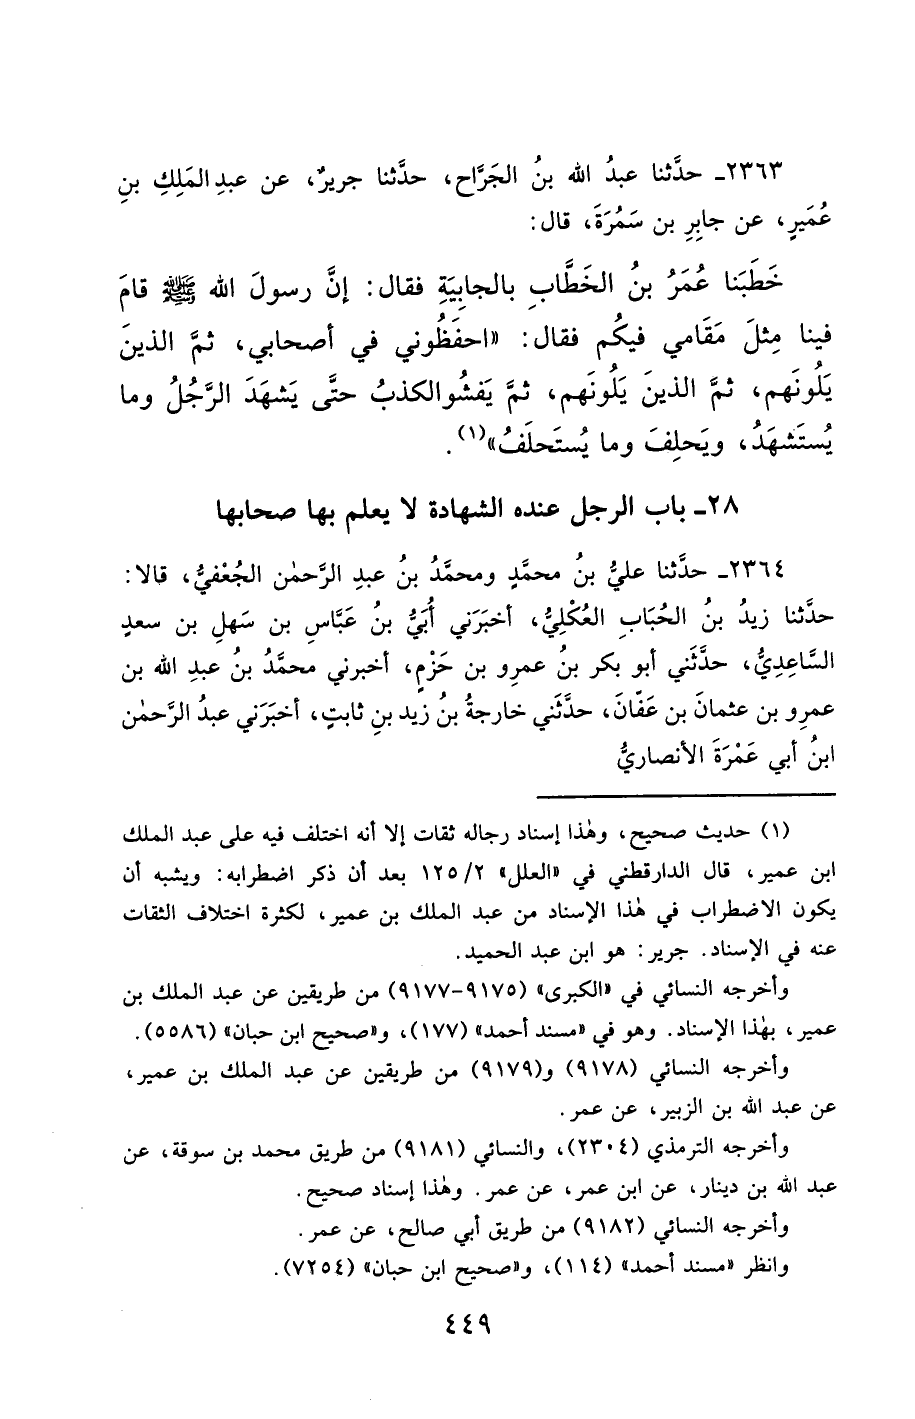 ٢٣٦٣ـ حدَّثنا عبدُ الله بنُ الجَرَّاح، حدَّثنا جريرٌ، عن عبدِ المَلِكِ بنِ
عُمَيرٍ، عن جابِرِ بن سَمُرَةَ، قال:
خَطَبَنا عُمَرُ بنُ الخَطَّابِ بالجابِيَةِ فقال: إنَّ رسولَ الله ﷺ قامَ
فينا مِثلَ مَقَامي فيكُم فقال: «احفَظُوني في أصحابي، ثمَّ الذينَ
يَلُونَهم، ثمَّ الذينَ يَلُونَهم، ثمَّ يَفشُو الكذبُ حتَّى يَشهَدَ الرَّجُلُ وما
يُستَشهَدُ، ويَحلِفَ وما يُستَحلَفُ»(١).
٢٨ـ باب الرجل عنده الشهادة لا يعلم بها صحابها
٢٣٦٤ـ حدَّثنا عليُّ بنُ محمَّدٍ ومحمَّدُ بنُ عبدِ الرَّحمٰن الجُعْفيُّ، قالا:
حدَّثنا زيدُ بنُ الحُبَابِ العُكْلِيُّ، أخبَرَني أُبَيُّ بنُ عَبَّاسِ بن سَهلِ بن سعدٍ
السَّاعِدِيُّ، حدَّثَني أبو بكر بنُ عمرِو بن حَزْمٍ، أخبرني محمَّدُ بنُ عبدِ الله بن
عمرِو بن عثمانَ بن عَفّانَ، حدَّثَني خارجةُ بنُ زيد بنِ ثابتٍ، أخبَرَني عبدُ الرَّحمٰن
ابنُ أبي عَمْرَةَ الأنصاريُّ
(١) حديث صحيح، وهٰذا إسناد رجاله ثقات إلا أنه اختلف فيه على عبد الملك
ابن عمير، قال الدارقطني في «العلل» ١٢٥/٢ بعد أن ذكر اضطرابه: ويشبه أن
يكون الاضطراب في هٰذا الإسناد من عبد الملك بن عمير، لكثرة اختلاف الثقات
عنه في الإسناد. جرير: هو ابن عبد الحميد.
وأخرجه النسائي في «الكبرى» (٩١٧٥-٩١٧٧) من طريقين عن عبد الملك بن
عمير، بهٰذا الإسناد. وهو في «مسند أحمد» (١٧٧)، و«صحيح ابن حبان» (٥٥٨٦).
وأخرجه النسائي (٩١٧٨) و(٩١٧٩) من طريقين عن عبد الملك بن عمير،
عن عبد الله بن الزبير، عن عمر.
وأخرجه الترمذي (٢٣٠٤)، والنسائي (٩١٨١) من طريق محمد بن سوقة، عن
عبد الله بن دينار، عن ابن عمر، عن عمر. وهٰذا إسناد صحيح.
وأخرجه النسائي (٩١٨٢) من طريق أبي صالح، عن عمر.
وانظر «مسند أحمد» (١١٤)، و«صحيح ابن حبان» (٧٢٥٤).
٤٤٩